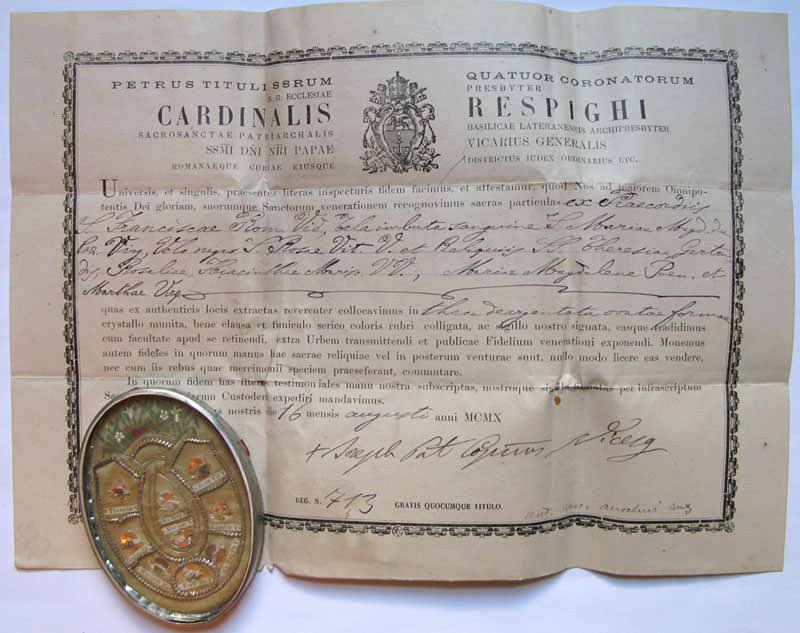 PETRUS TITULI SSRUM
QUATUOR CORONATORUM
S. R. ECCLESIAE
PRESBYTER
CARDINALIS
RESPIGHI
SACROSANCTAE PATRIARCHALIS
BASILICAE LATERANENSIS ARCHIPRESBYTER
SSMI DNI NRI PAPAE
VICARIUS GENERALIS
ROMANAEQUE CURIAE EIUSQUE
DISTRICTUS IUDEX ORDINARIUS ETC.
Universis, et singulis, praesentes literas inspecturis fidem facimus, et attestamur, quod Nos ad maiorem Omnipo-
tentis Dei gloriam, suorumque Sanctorum venerationem recognovimus sacras particulas ex Praecordiis
S. Franciscae Rom. Vid., Tela imbuta sanguine S. Mariae Magd. de
Paz. Virg., Velo nigro S. Rosae Vit. V. et Reliquiis SS. Theresiae, Gertru
dis, Rosaliae, Hiacinthae Maris. VV., Mariae Magdalene Poen. et
Marthae Virg.
quas ex authenticis locis extractas reverenter collocavimus in theca deargentata ovatae formae
crystallo munita, bene clausa et funiculo serico coloris rubri colligata, ac sigillo nostro signata, easque tradidimus
cum facultate apud se retinendi, extra Urbem transmittendi et publicae Fidelium venerationi exponendi. Monemus
autem fideles in quorum manus hae sacrae reliquiae vel in posterum venturae sunt, nullo modo licere eas vendere,
nec cum iis rebus quae mercimonii speciem praeseferant, commutare.
In quorum fidem has literas testimoniales manu nostra subscriptas, nostroque sigillo firmatas per infrascriptum
Sacrarum Custodem expediri mandavimus.
nostris die 16 mensis augusti anni MCMX
+ Joseph Pat. Vicesg
REG. N. 713 GRATIS QUOCUMQUE TITULO.